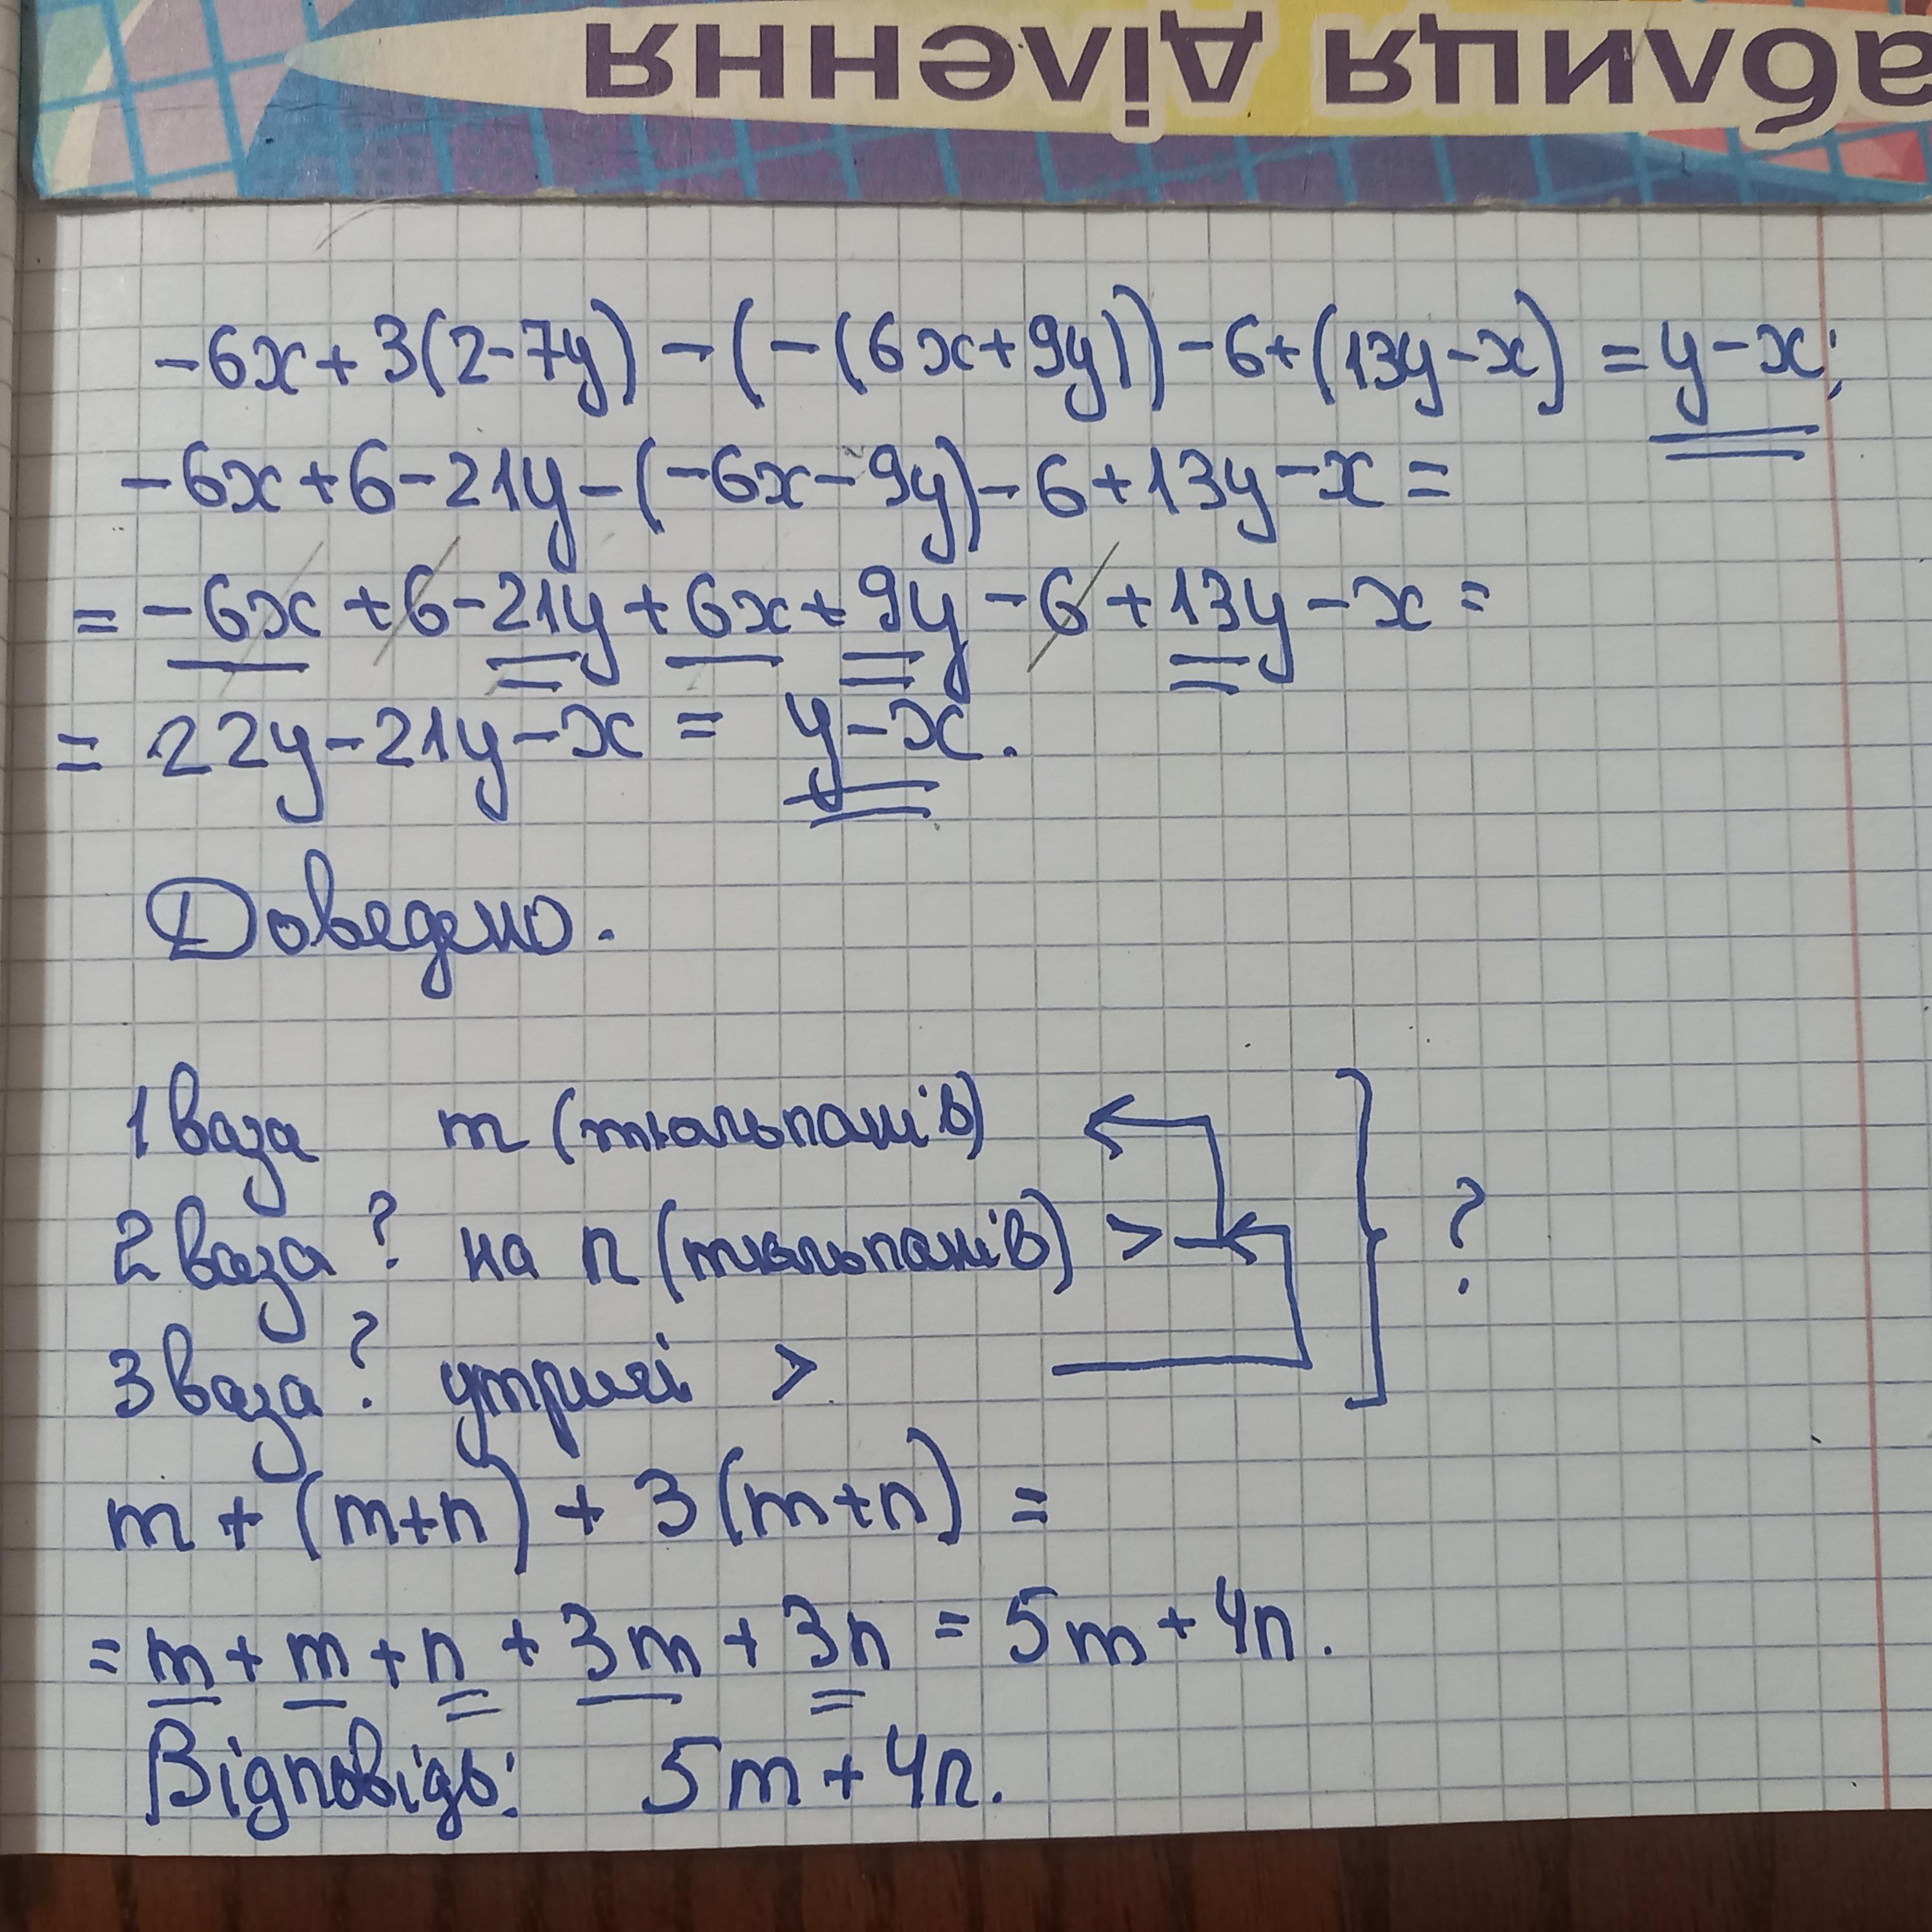 аблиця ділення
-6x+3(2-7y)-(-(6x+9y))-6+(13y-x)=y-x;
-6x+6-21y-(-6x-9y)-6+13y-x=
=-6x+6-21y+6x+9y-6+13y-x=
=22y-21y-x= y-x.
Доведено.
1 ваза m (тюльпанів)
2 ваза ? на n (тюльпанів) > ?
3 ваза ? утричі >
m+(m+n)+3(m+n)=
=m+m+n+3m+3n=5m+4n.
Відповідь: 5m+4n.